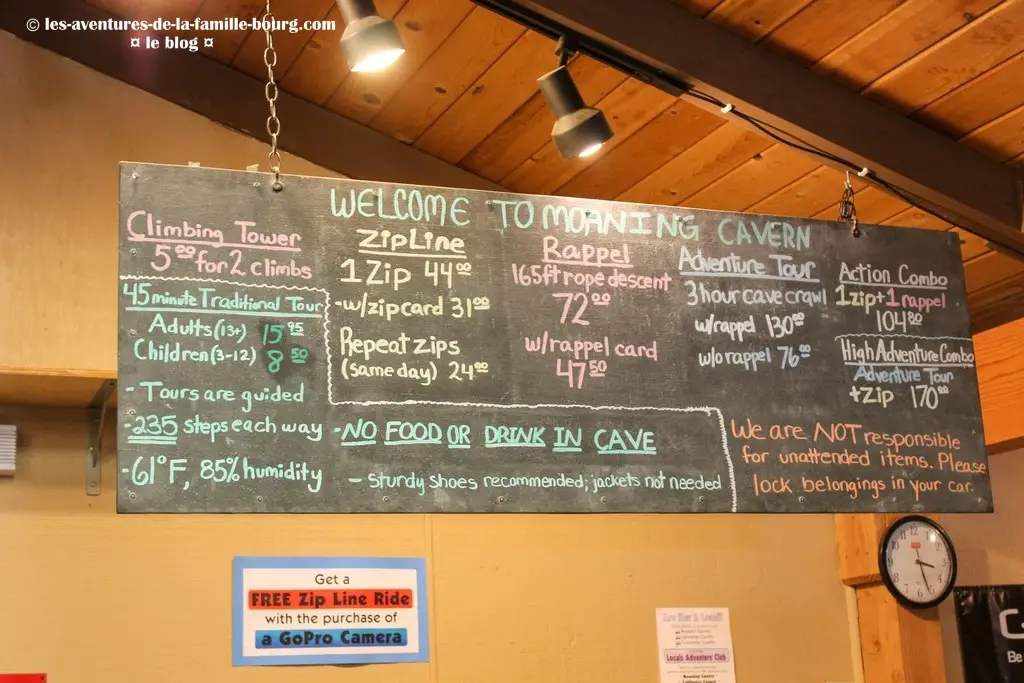 © les-aventures-de-la-famille-bourg.com
¤ le blog ¤
WELCOME TO MOANING CAVERN
Climbing Tower
5.00 for 2 climbs
45 minute Traditional Tour
Adults (13+) 15 95
Children (3-12) 8 50
- Tours are guided
- 235 steps each way
- 61°F, 85% humidity
ZipLine
1 Zip 44 00
- w/zipcard 31 00
Repeat zips
(same day) 24 00
Rappel
165ft rope descent
72 00
w/rappel card
47 50
Adventure Tour
3 hour cave crawl
w/rappel 130 00
w/o rappel 76 00
Action Combo
1zip + 1 rappel
104 80
High Adventure Combo
Adventure Tour
+ Zip 170 00
- NO FOOD OR DRINK IN CAVE
- sturdy shoes recommended; jackets not needed
We are NOT responsible
for unattended items. Please
lock belongings in your car.
Get a
FREE Zip Line Ride
with the purchase of
a GoPro Camera
Locals Adventure Club
G
Be